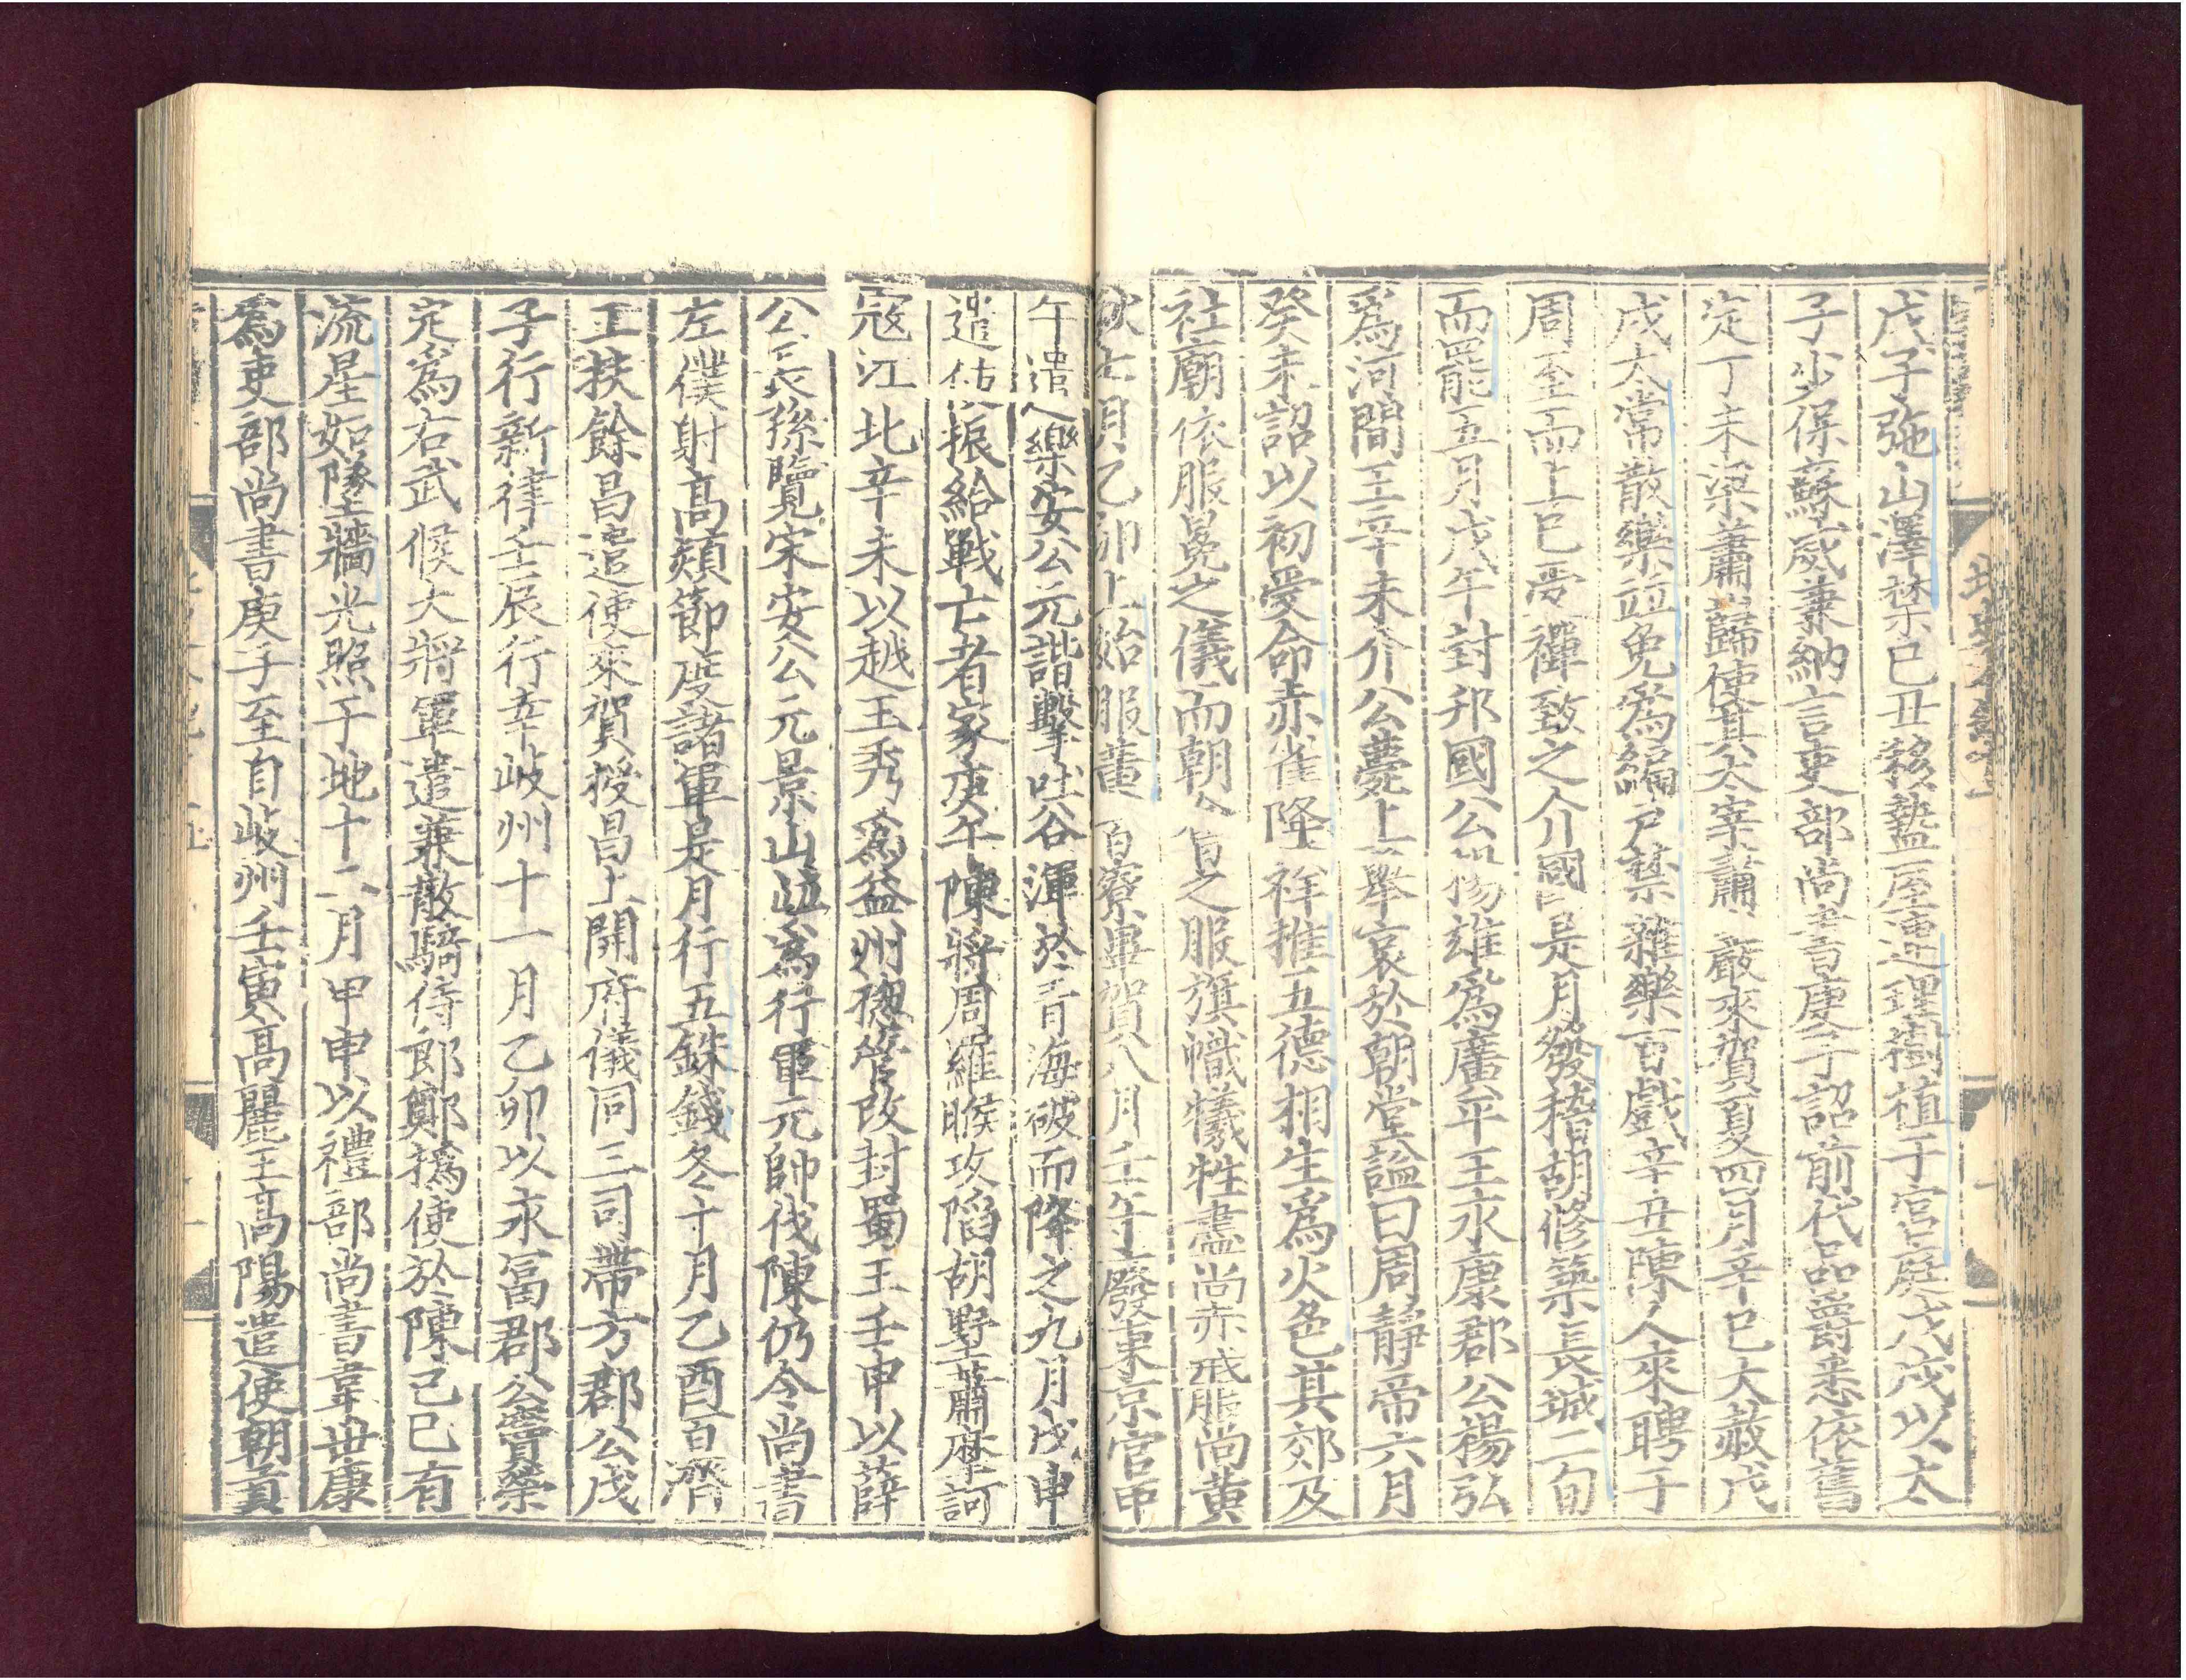 戊子弛山澤禁己丑移盩厔連理樹植于宫庭戊戌以太
子少保蘇威兼納言吏部尚書庚子詔前代品爵悉依舊
定丁未梁蕭巋使其太宰蕭巖來賀夏四月辛巳大赦戊
戌大常散樂並免爲編戸禁雜樂百戲辛丑陳人來聘于
周至而上已受禪致之介國是月發稽胡修築長城二旬
而罷五月戊午封邦國公楊雄爲廣平王永康郡公楊弘
爲河間王辛未介公薨上舉哀於朝堂諡曰周靜帝六月
癸未詔以初受命赤雀降祥推五德相生爲火色其郊及
社廟依服冕之儀而朝會之服旗幟犧牲盡尚赤戎服尚黄
秋七月乙卯上始服黄百寮畢賀八月壬午廢東京官甲
午遣樂安公元諧擊吐谷渾於青海破而降之九月戊申
遣使振給戰亡者家庚午陳將周羅睺攻陷胡墅蕭摩訶
寇江北辛未以越王秀爲益州總管改封蜀王壬申以薛
公長孫覽宋安公元景山並爲行軍元帥伐陳仍令尚書
左僕射高熲節度諸軍是月行五銖錢冬十月乙酉百濟
王扶餘昌遣使來賀授昌上開府儀同三司帶方郡公戊
子行新律壬辰行幸岐州十一月乙卯以永富郡公竇榮
定爲右武候大將軍遣兼散騎侍郎鄭撝使於陳己巳有
流星如墜牆光照于地十二月甲申以禮部尚書韋世康
爲吏部尚書庚子至自岐州壬寅高麗王高陽遣使朝貢